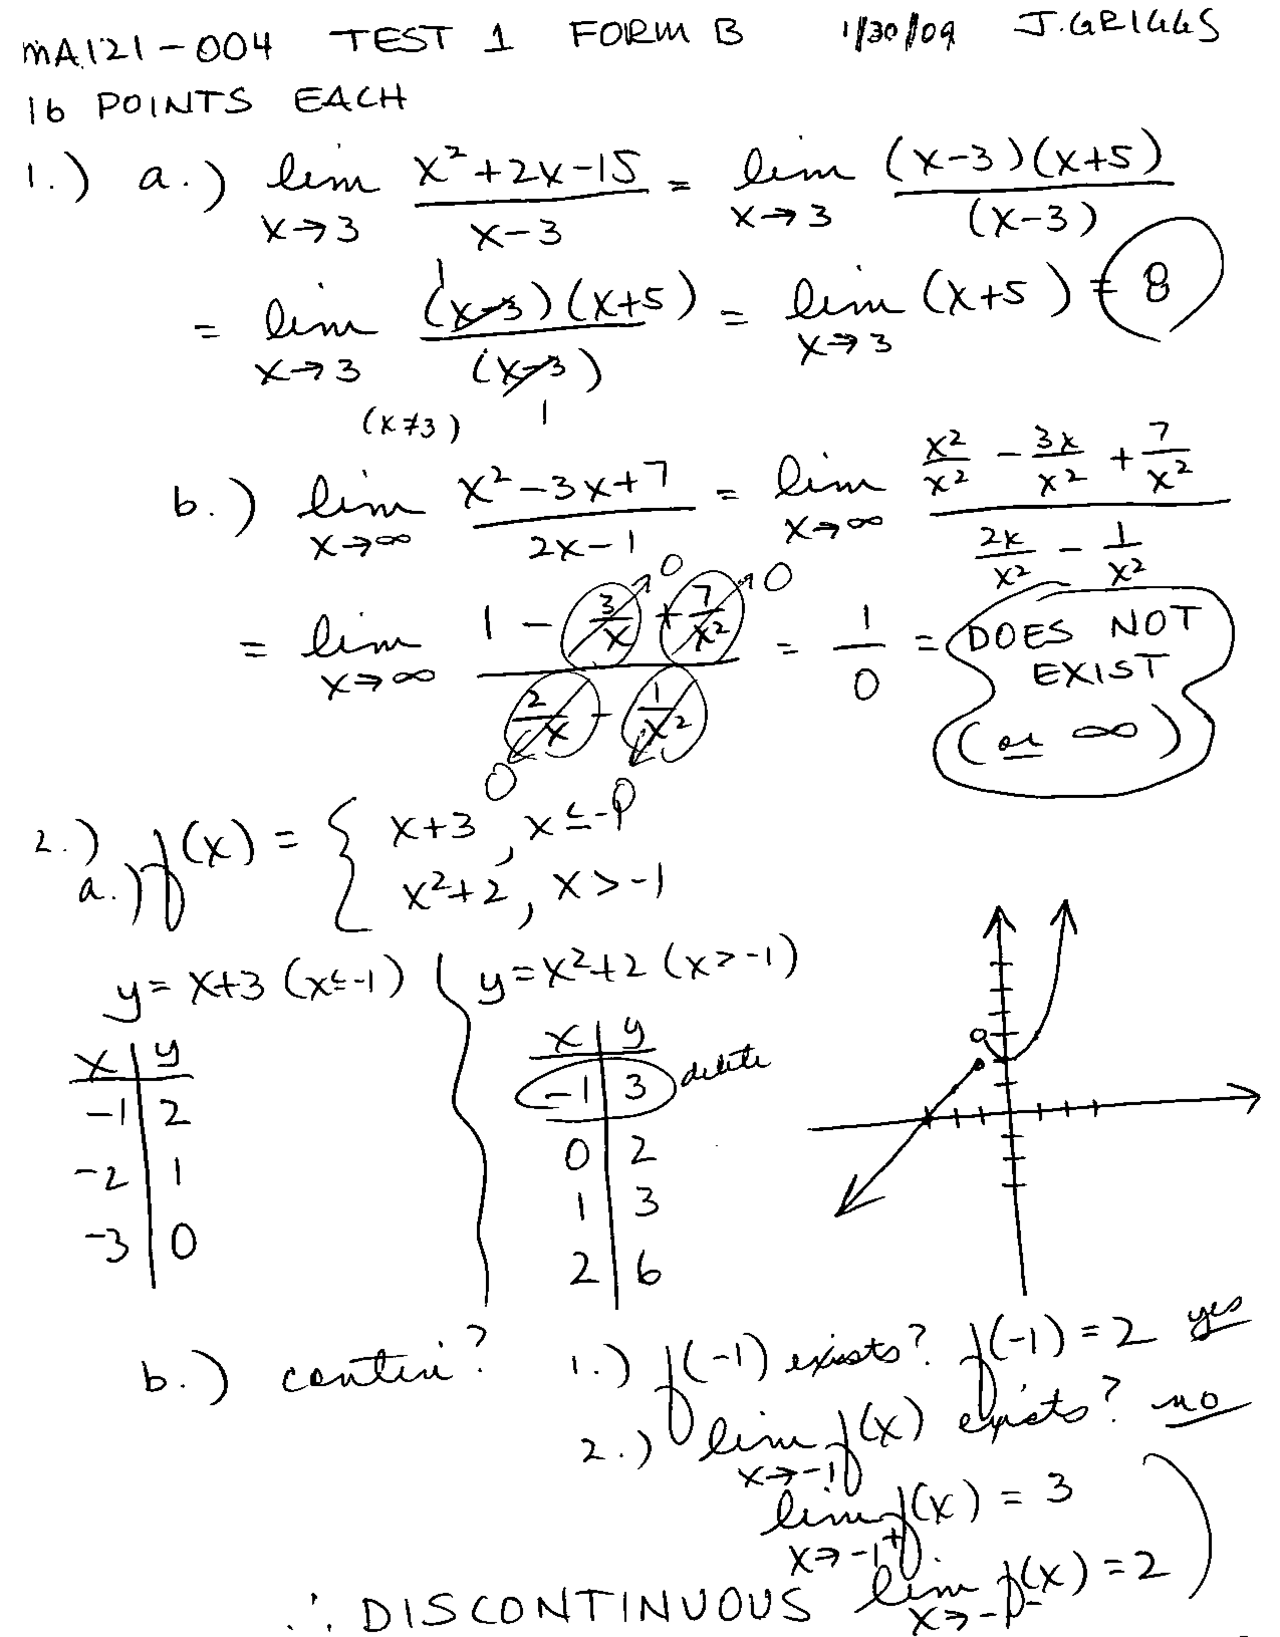 MA121-004 TEST 1 FORM B 1/30/09 J. GRIGGS
16 POINTS EACH
1.) a.) lim x→3 (x²+2x-15)/(x-3) = lim x→3 (x-3)(x+5)/(x-3)
= lim x→3 (x≠3) (x-3)(x+5)/(x-3) 1 1 = lim x→3 (x+5) = 8
b.) lim x→∞ (x²-3x+7)/(2x-1) = lim x→∞ (x²/x² - 3x/x² + 7/x²)/(2x/x² - 1/x²)
= lim x→∞ (1 - 3/x + 7/x²)/(2/x - 1/x²) 0 0 0 0 = 1/0 = DOES NOT EXIST (or ∞)
2.) a.) f(x) = { x+3, x≤-1
x²+2, x>-1
y=x+3 (x≤-1) y=x²+2 (x>-1)
x | y
-1 | 2
-2 | 1
-3 | 0
x | y
-1 | 3 delete
0 | 2
1 | 3
2 | 6
b.) contin? 1.) f(-1) exists? f(-1)=2 yes
2.) lim x→-1 f(x) exists? no
lim x→-1⁺ f(x) = 3
∴ DISCONTINUOUS lim x→-1⁻ f(x) = 2